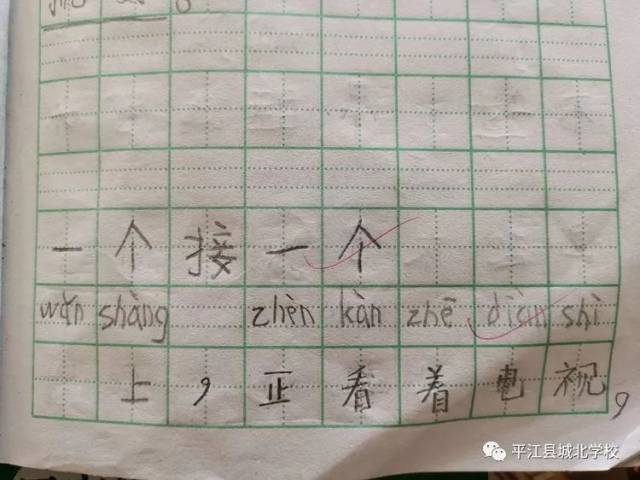 一个接一个
wǎn shàng zhèn kàn zhē diàn shì
上，正看着电视，
平江县城北学校